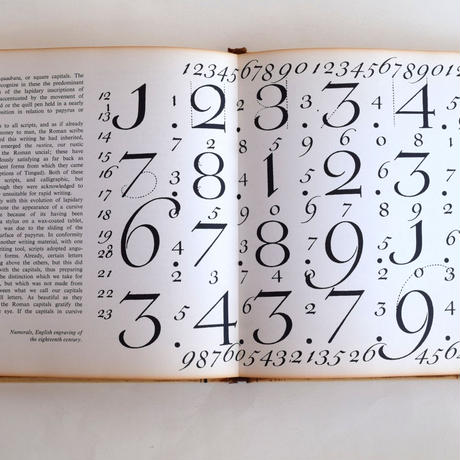 quadrata, or square capitals. The
recognize in these the predominant
of lapidary inscriptions of
accentuated by the movement of
d or the quill pen held in a nearly
osition in relation to papyrus or
to all scripts, and as if already
money to man, the Roman scribe
this writing he had inherited,
emerged the rustica, our rustic
the Roman uncial; these have
ously satisfying as far back as
ient forms from which they came
ptions of Timgad). Both of these
scripts, and calligraphic, but
ough they were acknowledged to
unsuitable for rapid writing.
y with this evolution of lapidary
note the appearance of a cursive
e because of its having been
stylus on a wax-coated tablet,
was due to the sliding of the
urface of papyrus. In conformity
nother writing material, with one
riting tool, scripts adopted angu-
e forms. Already, certain letters
g above the others, but this did
with the capitals, thus preparing
the distinction which we take for
, but which was not made from
ween what we call our capitals
ll letters. As beautiful as they
the Roman capitals gratify the
r eye. If the capitals in cursive
Numerals, English engraving of
the eighteenth century.
1234567890 123456 7890 12
12
1
13
1. 2. 3. 3. 4.
14
15
16
17
7. 8. 1. 2. 3.
18
19
20
21
6. 7. 8. 9. 1.
21
22
23
3. 4. 3. 7. 9.
98760543202135260 4562